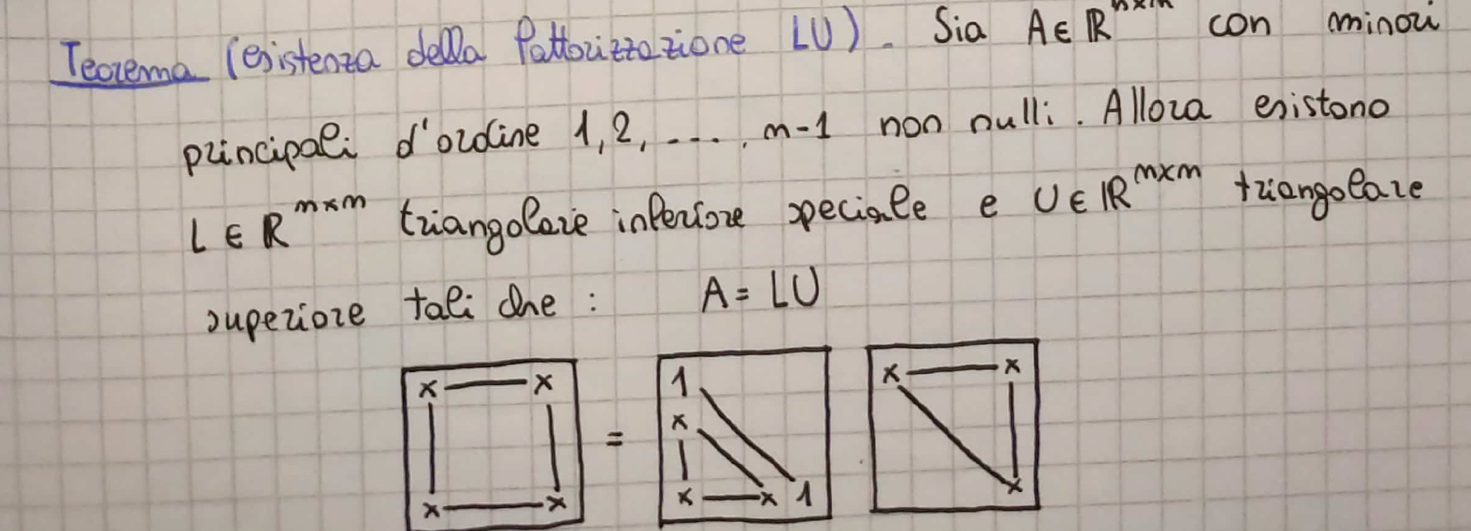 Teorema (esistenza della fattorizzazione LU). Sia A ∈ ℝⁿˣⁿ con minori
principali d'ordine 1, 2, ...., n-1 non nulli. Allora esistono
L ∈ ℝⁿˣⁿ triangolare inferiore speciale e U ∈ ℝⁿˣⁿ triangolare
superiore tali che : A = LU
x x 1 x x
x =
x x x x 1 x